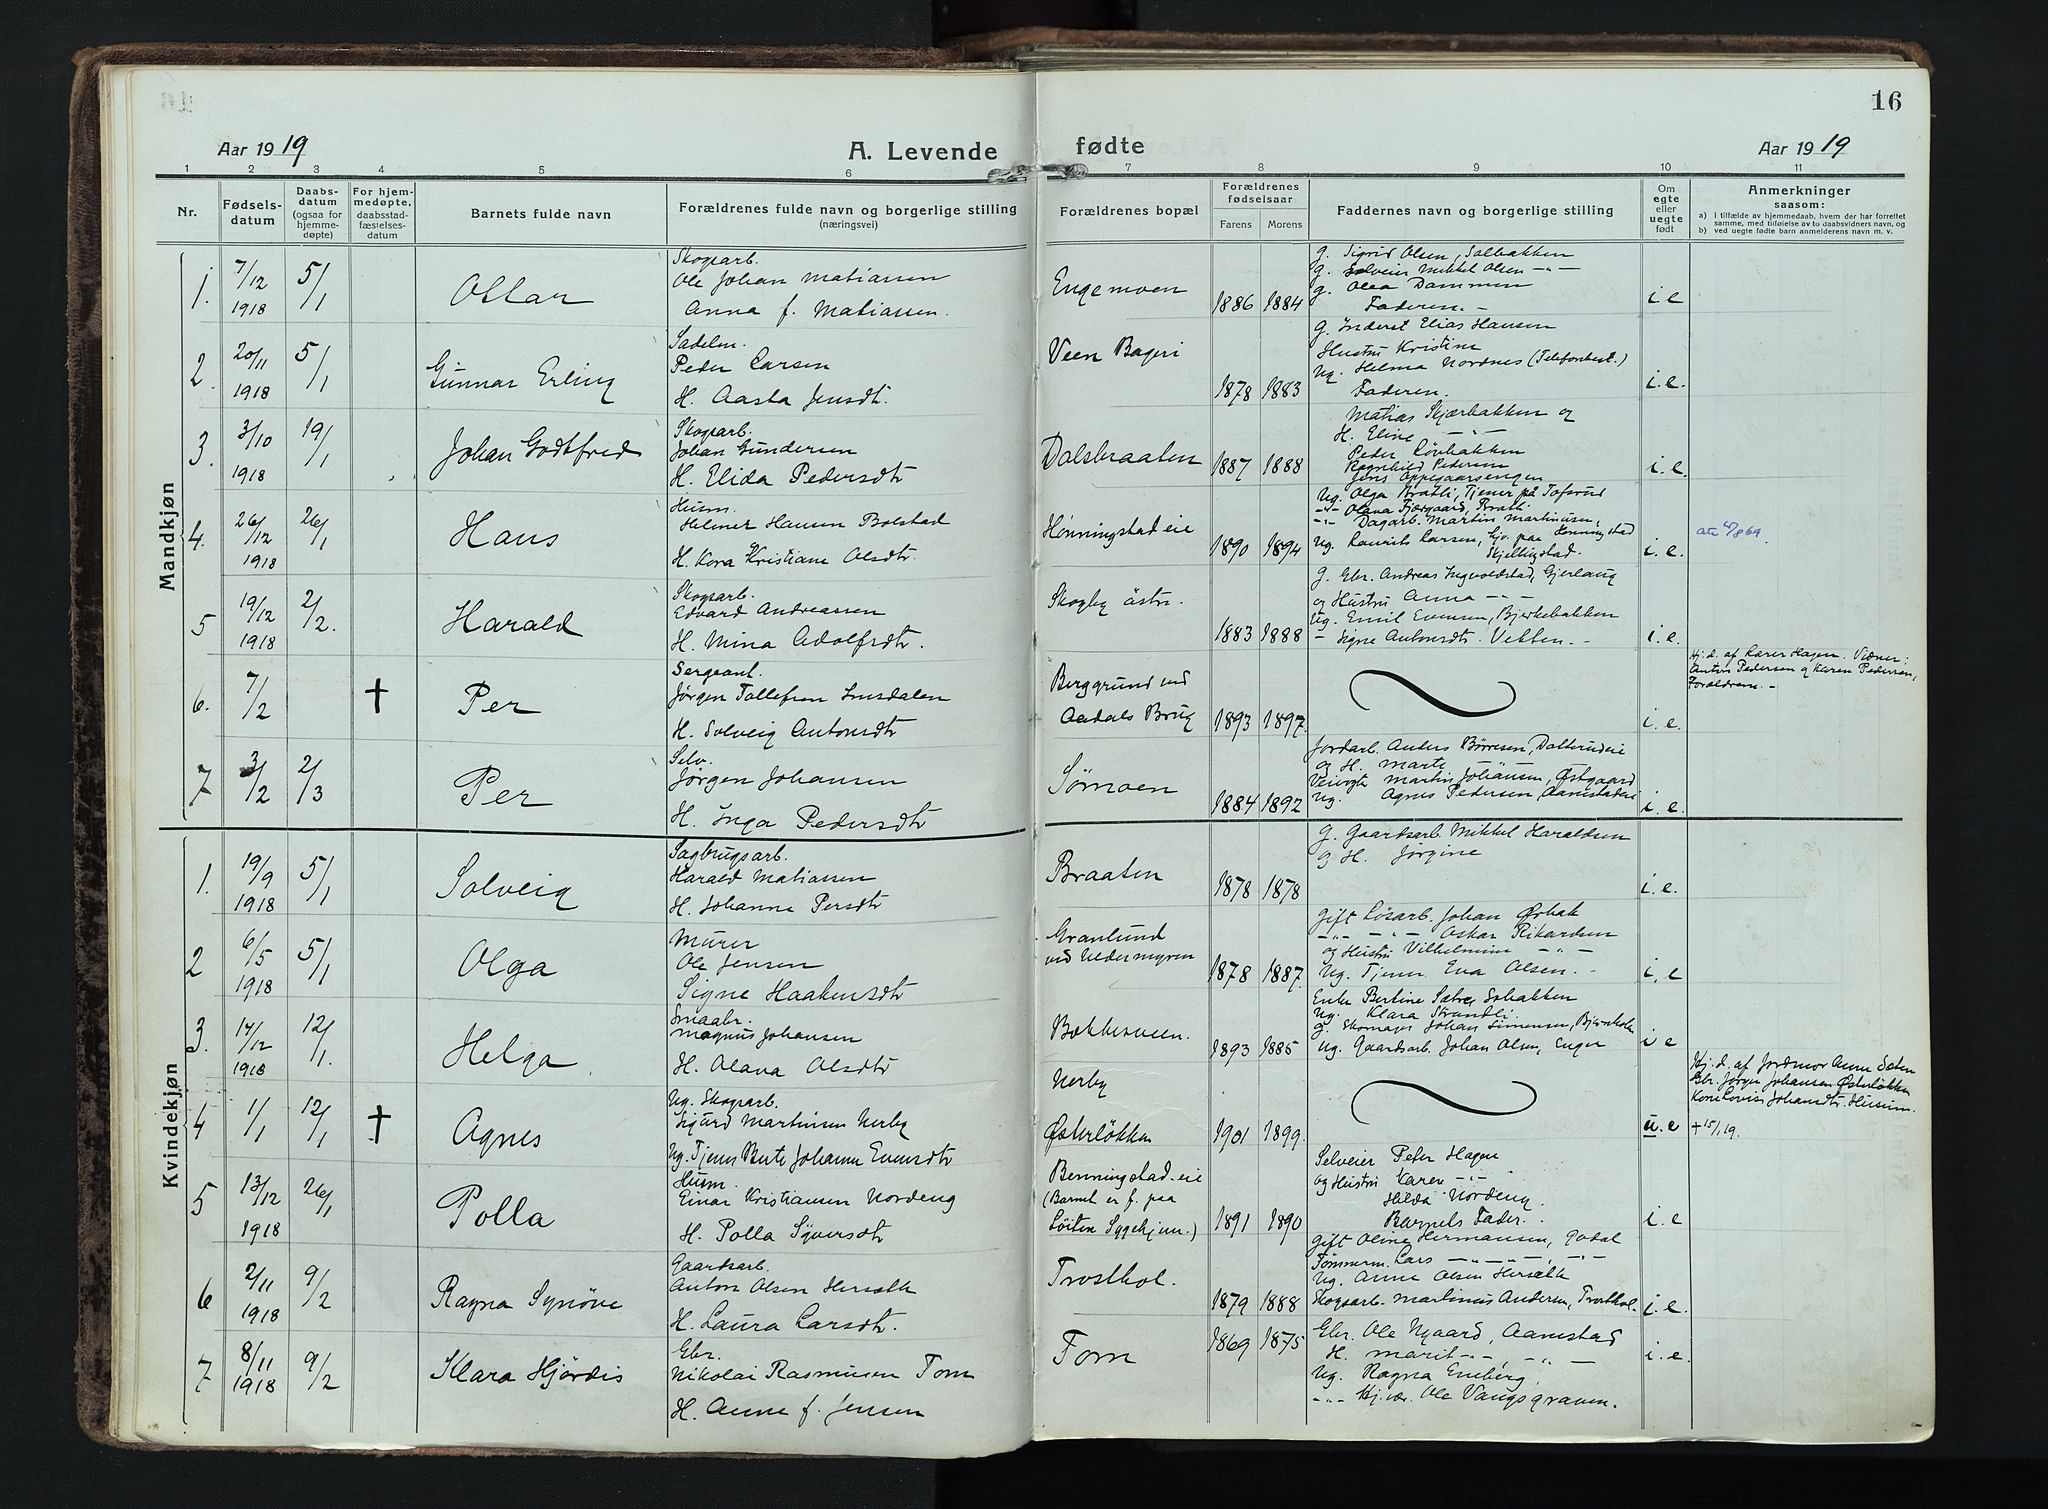 16
Aar 1919
A. Levende
fødte
Aar 1919
1 2 3 4 5 6 7 8 9 10 11
Nr.
Fødsels-
datum
Daabs-
datum
(ogsaa for
hjemme-
døpte)
For hjem-
medøpte,
daabsstad-
fæstelses-
datum
Barnets fulde navn
Forældrenes fulde navn og borgerlige stilling
(næringsvei)
Forældrenes bopæl
Forældrenes
fødselsaar
Farens Morens
Faddernes navn og borgerlige stilling
Om
egte
eller
uegte
født
Anmerkninger
saasom:
a) I tilfælde av hjemmedaab, hvem der har forrettet
samme, med tilføielse av to daabsvidners navn, og
b) ved uegte fødte barn anmelderens navn m. v.
Mandkjøn
1. 7/12 1918 5/1 Ottar
Skogsarb.
Ole Johan Matiassen
Anna f. Matiassen.
Engemoen 1886 1884
g. Sigrid Olsen, Solbakken
g. Mikkel Olsen -"-
g. Olea Dammen
Faderen. -
i.e
2. 20/11 1918 5/1 Gunnar Erling
Sadelm.
Peder Larsen
H. Aasta Jensdt.
Veen Bageri 1878 1883
g. Elias Hansen
Hustru Kristine
Ug. Helma Nordnes (Telefonbest.)
Faderen.
i.e.
3. 3/10 1918 19/1 Johan Godtfred
Skogsarb.
Johan Gundersen
H. Elida Pedersdtr
Dalsbraaten 1887 1888
Matias Skjærbakken og
H. Eline -"-
Peder Løvbakken
Ragnhild Pedersen
Jens Oppegaarsengen
i.e.
4. 26/12 1918 26/1 Hans
Husm.
Helmer Hansen Bolstad
H. Kora Kristiane Olsdtr.
Hønningstadeie 1890 1894
Ug. Olga Bratli, Tjener på Tofsrud
-"- Olava Fjærgaard, Bratli
-"- Dagarb. Martin Martinusen,
Ug. Laurits Larsen, paa Hønningstad
Skjellingstad.
i.e.
5 19/12 1918 2/2. Harald
Skogsarb.
Edvard Andreassen
H. Mina Adolfsdtr.
Skogby østre. 1883 1888
g. Gbr. Andreas Ingvoldstad, Gjerlaug
og Hustru Anna -"-
Ug. Emil Evensen, Bjerkebakken
- Signe Antonsdtr. Vetten. -
i.e.
6. 7/2 † Per
Sergeant.
Jørgen Tollefsen Imsdalen
H. Solveig Antonsdtr
Berggrund ved
Aadals Brug 1893 1897.
i.e.
Hj. d. af Karen Hagen. Vidner:
Anton Pedersen og Karen Pedersen,
Forældrene. -
7 3/2 2/3 Per
Selv.
Jørgen Johansen
H. Inga Pedersdtr
Sømoen 1884 1892
Jordarb. Anders Børresen, Dalterudeie
og H. Marte -"-
Veivogte Martin Johansen, Østgaard
Ug. Agnes Pedersen, Aamstadeie
i.e.
Kvindekjøn
1. 19/9 1918 5/1 Solveig
Sagbrugsarb.
Harald Matiassen
H. Johanne Persdtr
Braaten 1878 1878
g. Gaardsarb. Mikkel Haraldsen
og H. Jørgine
i.e.
2 6/5 1918 5/1 Olga
Murer
Ole Jensen
Signe Haakensdtr
Granlund
ved Uldermyren 1878 1887.
gift Løsarb. Johan Ørbak
-"- -"- Oskar Rikardsen
og Hustru Vilhelmine -"-
Ug. Tjener Eva Olsen. -
i.e
3. 14/12 1918 12/1. Helga
Smaabr.
Magnus Johansen
H. Olava Olsdtr
Bækkesveen. 1893 1885
Enke Bertine Sætre, Solbakken
Ug. Klara Strandli.
g. Skomager Johan Simensen, Bjørnholen
Ug. Gaardsarb. Johan Olsen, Enger
i e
4 1/1 12/1 † Agnes
Ug. Skogsarb.
Sigurd Martinsen Nerby
Ug. Tjener Berte Johanne Evensdtr
Nerby
Østerløkken 1901 1899.
u.e
Hj. d. af Jordmor Anne Sæten
Gbr. Jørgen Johansen Østerløkken
Kone Lovise Johansdtr. Husum.
+ 15/1 19.
5 13/12 1918 26/1 Polla
Husm.
Einar Kristiansen Nordeng
H. Polla Syversdtr
Benningstad eie
(Barnet er f. paa
Løiten Sygehjem.) 1891 1890
Selveier Peter Hagen
og Hustru Karen -"-
Hilda Nordeng.
Barnets Fader.
i.e
6 2/11 1918 9/2 Ragna Synøve
Gaardsarb.
Anton Olsen Hersæth
H. Laura Larsdtr.
Trosthol. 1879 1888
gift Oline Hermansen, Godal
Tømmerm. Lars -"- -"-
Ug. Anne Olsen Hersæth
Skogsarb. Martinus Andersen, Trosthol.
i.e.
7 8/11 1918 9/2 Klara Hjørdis
Gbr.
Nikolai Rasmusen Tom
H. Anne f. Jensen
Tom 1869 1875
Gbr. Ole Nygaard, Aamstad
H. Marit -"- -"-
Ug. Ragna Eneberg,
-"- Ole Vangsgraven.
i.e.